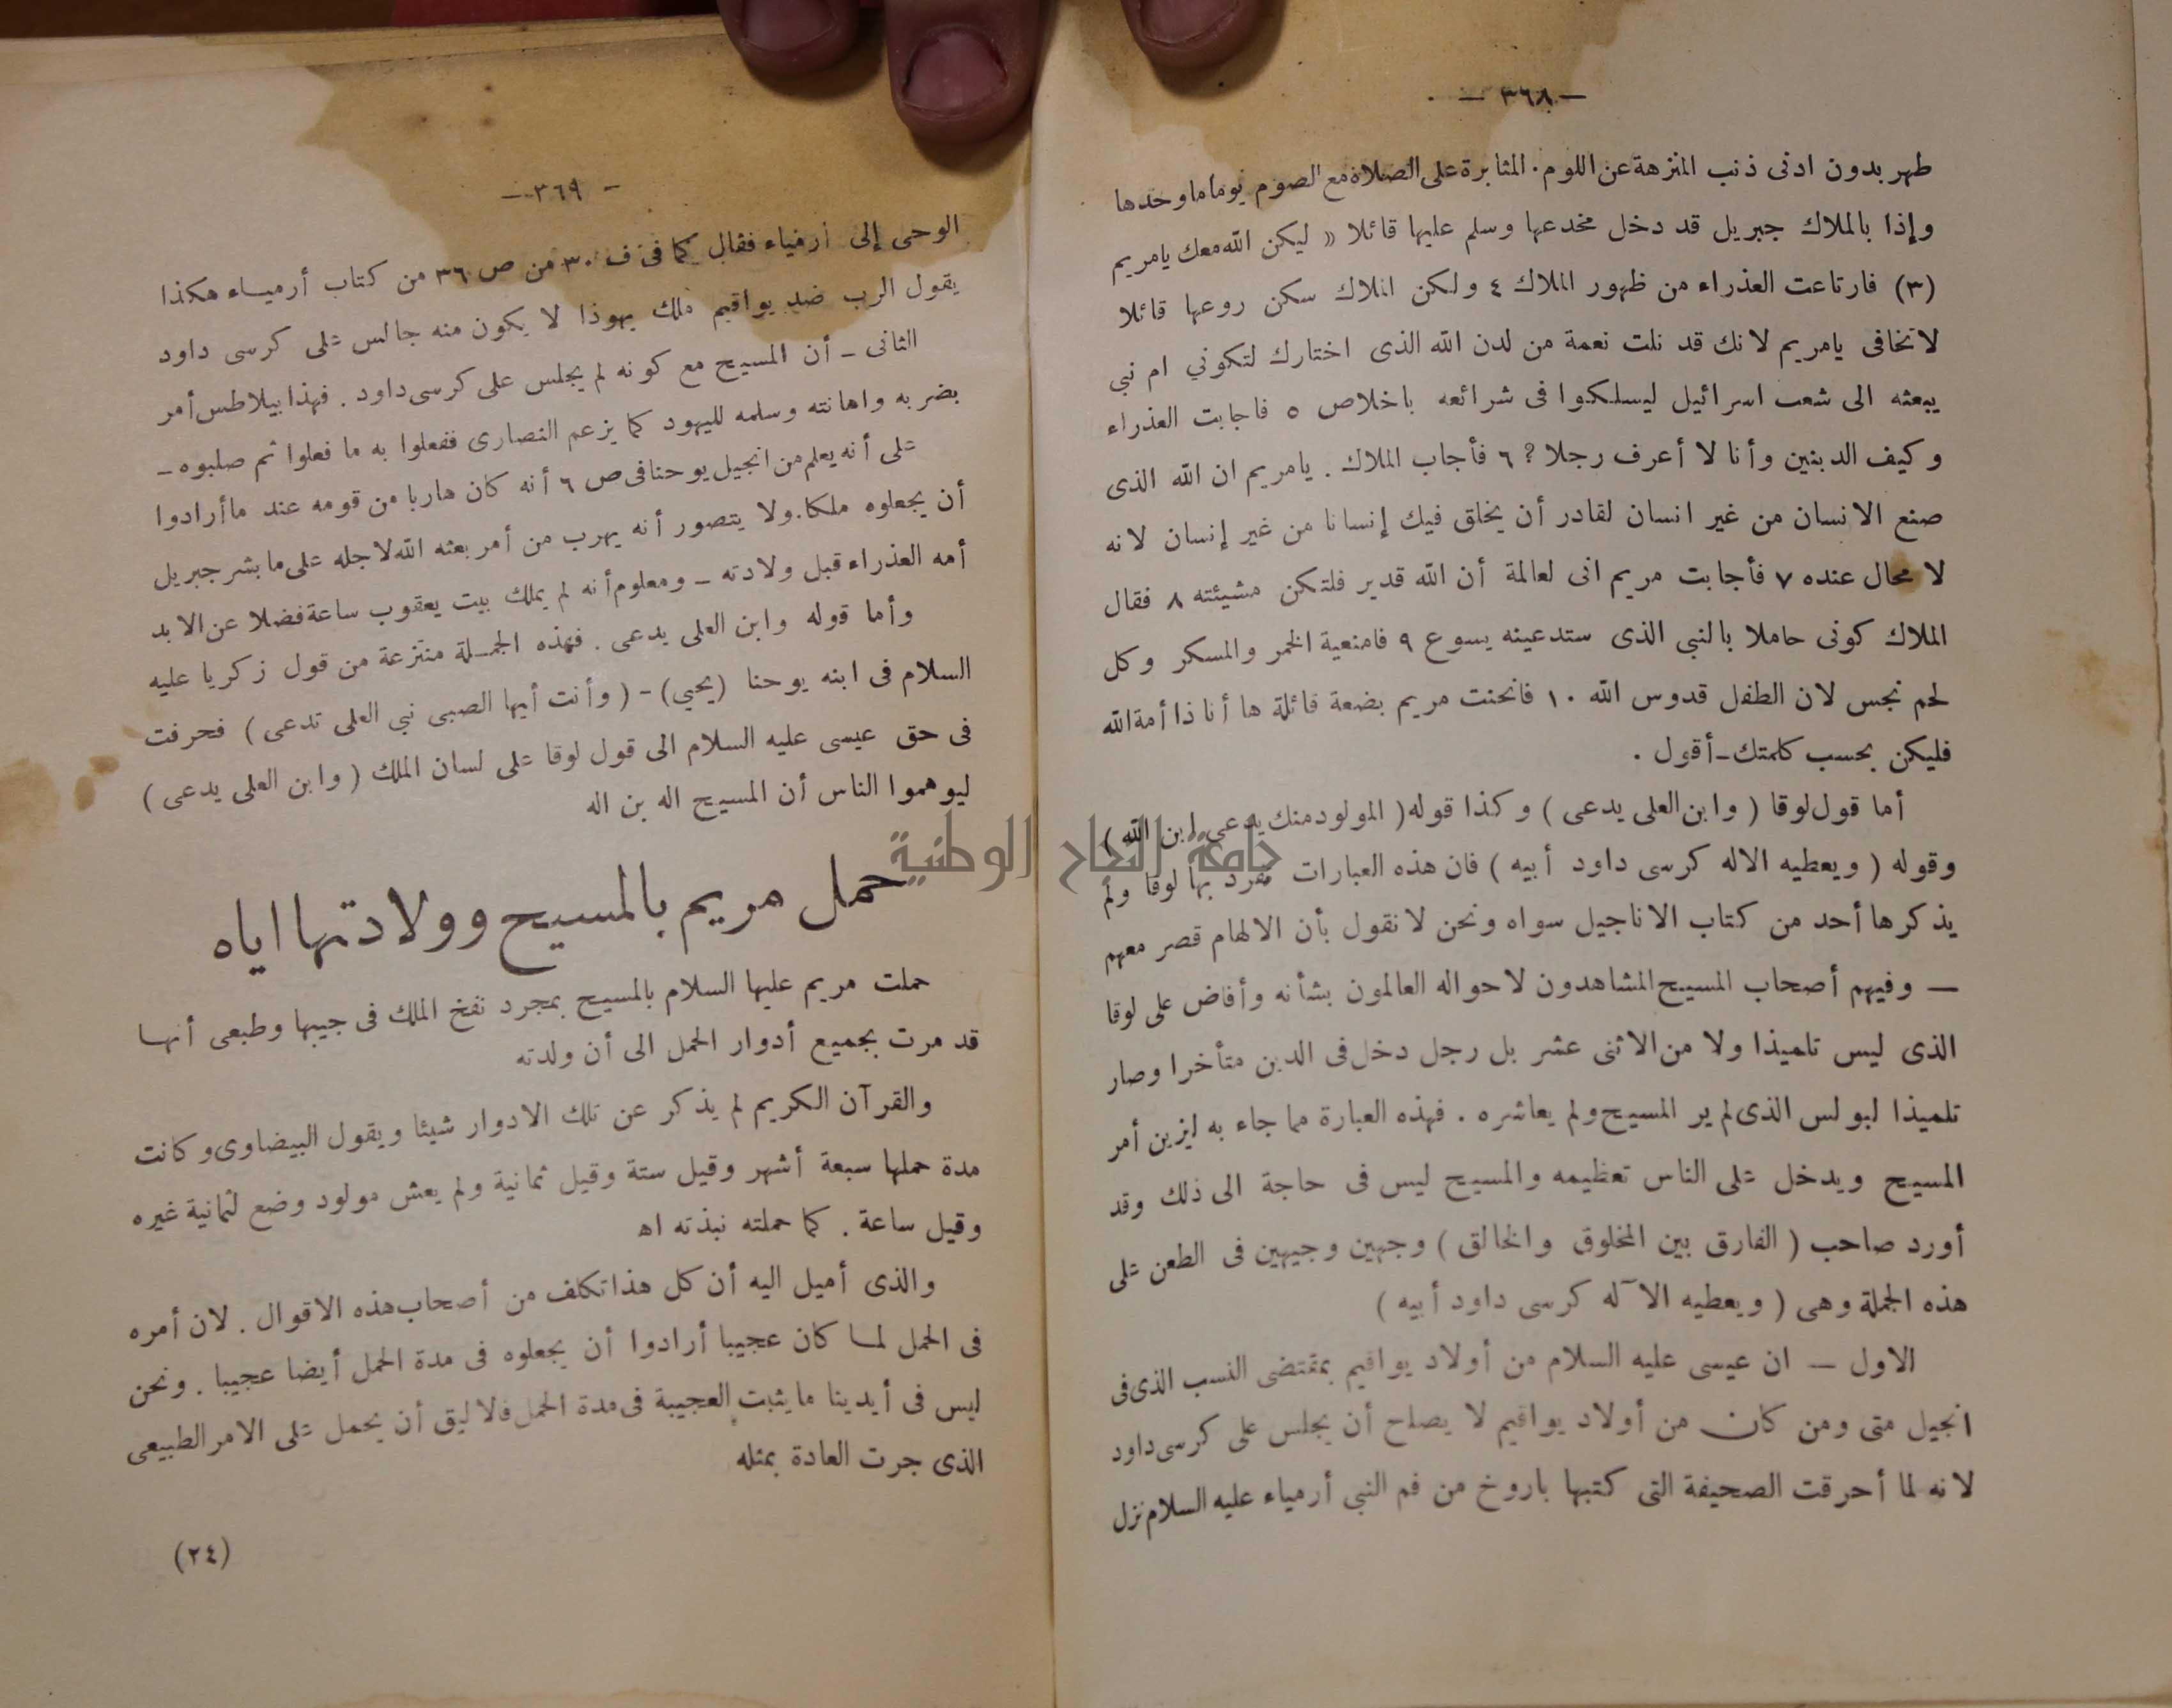 — ٣٦٨ —
طهر بدون ادنى ذنب المنزهة عن اللوم . المثابرة على الصلاة مع الصوم يوما ما وحدها
وإذا بالملاك جبريل قد دخل مخدعها وسلم عليها قائلا « ليكن الله معك يا مريم
(٣) فارتاعت العذراء من ظهور الملاك ٤ ولكن الملاك سكن روعها قائلا
لا تخافى يامريم لانك قد نلت نعمة من لدن الله الذى اختارك لتكوني ام نبي
يبعثه الى شعب اسرائيل ليسلكوا فى شرائعه باخلاص ٥ فاجابت العذراء
وكيف الد بنين وأنا لا أعرف رجلا ? ٦ فأجاب الملاك . يامريم ان الله الذى
صنع الانسان من غير انسان لقادر أن يخلق فيك إنسانا من غير إنسان لانه
لا محال عنده ٧ فأجابت مريم انى لعالمة أن الله قدير فلتكن مشيئته ٨ فقال
الملاك كونى حاملا بالنبي الذى ستدعينه يسوع ٩ فامنعية الخمر والمسكر وكل
لحم نجس لان الطفل قدوس الله ١٠ فانحنت مريم بضعة قائلة ها أنا ذا أمة الله
فليكن بحسب كلمتك ـ أقول .
أما قول لوقا ( وابن العلى يدعى ) وكذا قوله ( المولود منك يدعى ابن الله )
وقوله ( ويعطيه الاله كرسى داود أبيه ) فان هذه العبارات تفرد بها لوقا ولم
يذكرها أحد من كتاب الاناجيل سواه ونحن لا نقول بأن الالهام قصر معهم
— وفيهم أصحاب المسيح المشاهدون لاحواله العالمون بشأنه وأفاض على لوقا
الذى ليس تلميذا ولا من الاثنى عشر بل رجل دخل فى الدين متأخرا وصار
تلميذا لبولس الذى لم ير المسيح ولم يعاشره . فهذه العبارة مما جاء به ليزين أمر
المسيح ويدخل على الناس تعظيمه والمسيح ليس فى حاجة الى ذلك وقد
أورد صاحب ( الفارق بين المخلوق والخالق ) وجهين وجيهين فى الطعن على
هذه الجملة وهى ( ويعطيه الآله كرسى داود أبيه )
الاول — ان عيسى عليه السلام من أولاد يواقيم بمقتضى النسب الذى فى
انجيل متى ومن كان من أولاد يواقيم لا يصلح أن يجلس على كرسى داود
لانه لما أحرقت الصحيفة التى كتبها باروخ من فم النبي أرمياء عليه السلام نزل
— ٣٦٩ —
الوحى إلى أرمياء فقال كما فى ف ٣٠ من ص ٣٦ من كتاب أرمياء هكذا
يقول الرب ضد يواقيم ملك يهوذا لا يكون منه جالس على كرسى داود
الثانى ـ أن المسيح مع كونه لم يجلس على كرسى داود . فهذا بيلاطس أمر
بضربه واهانته وسلمه لليهود كما يزعم النصارى ففعلوا به ما فعلوا ثم صلبوه ـ
على أنه يعلم من انجيل يوحنا فى ص ٦ أنه كان هاربا من قومه عند ما أرادوا
أن يجعلوه ملكا . ولا يتصور أنه يهرب من أمر بعثه الله لاجله على ما بشر جبريل
أمه العذراء قبل ولادته ـ ومعلوم أنه لم يملك بيت يعقوب ساعة فضلا عن الابد
وأما قوله وابن العلى يدعى . فهذه الجملة منتزعة من قول زكريا عليه
السلام فى ابنه يوحنا (يحيى) - ( وأنت أيها الصبى نبي العلى تدعى ) فحرفت
فى حق عيسى عليه السلام الى قول لوقا على لسان الملك ( وابن العلى يدعى )
ليوهموا الناس أن المسيح اله بن اله
حمل مريم بالمسيح وولادتها اياه
حملت مريم عليها السلام بالمسيح بمجرد نفخ الملك فى جيبها وطبعى أنها
قد مرت بجميع أدوار الحمل الى أن ولدته
والقرآن الكريم لم يذكر عن تلك الادوار شيئا ويقول البيضاوى وكانت
مدة حملها سبعة أشهر وقيل ستة وقيل ثمانية ولم يعش مولود وضع لثمانية غيره
وقيل ساعة . كما حملته نبذته اه
والذى أميل اليه أن كل هذا تكلف من أصحاب هذه الاقوال . لان أمره
فى الحمل لما كان عجيبا أرادوا أن يجعلوه فى مدة الحمل أيضا عجيبا . ونحن
ليس فى أيدينا ما يثبت العجيبة فى مدة الحمل فالاليق أن يحمل على الامر الطبيعى
الذى جرت العادة بمثله
(٢٤)
جامعة النجاح الوطنية